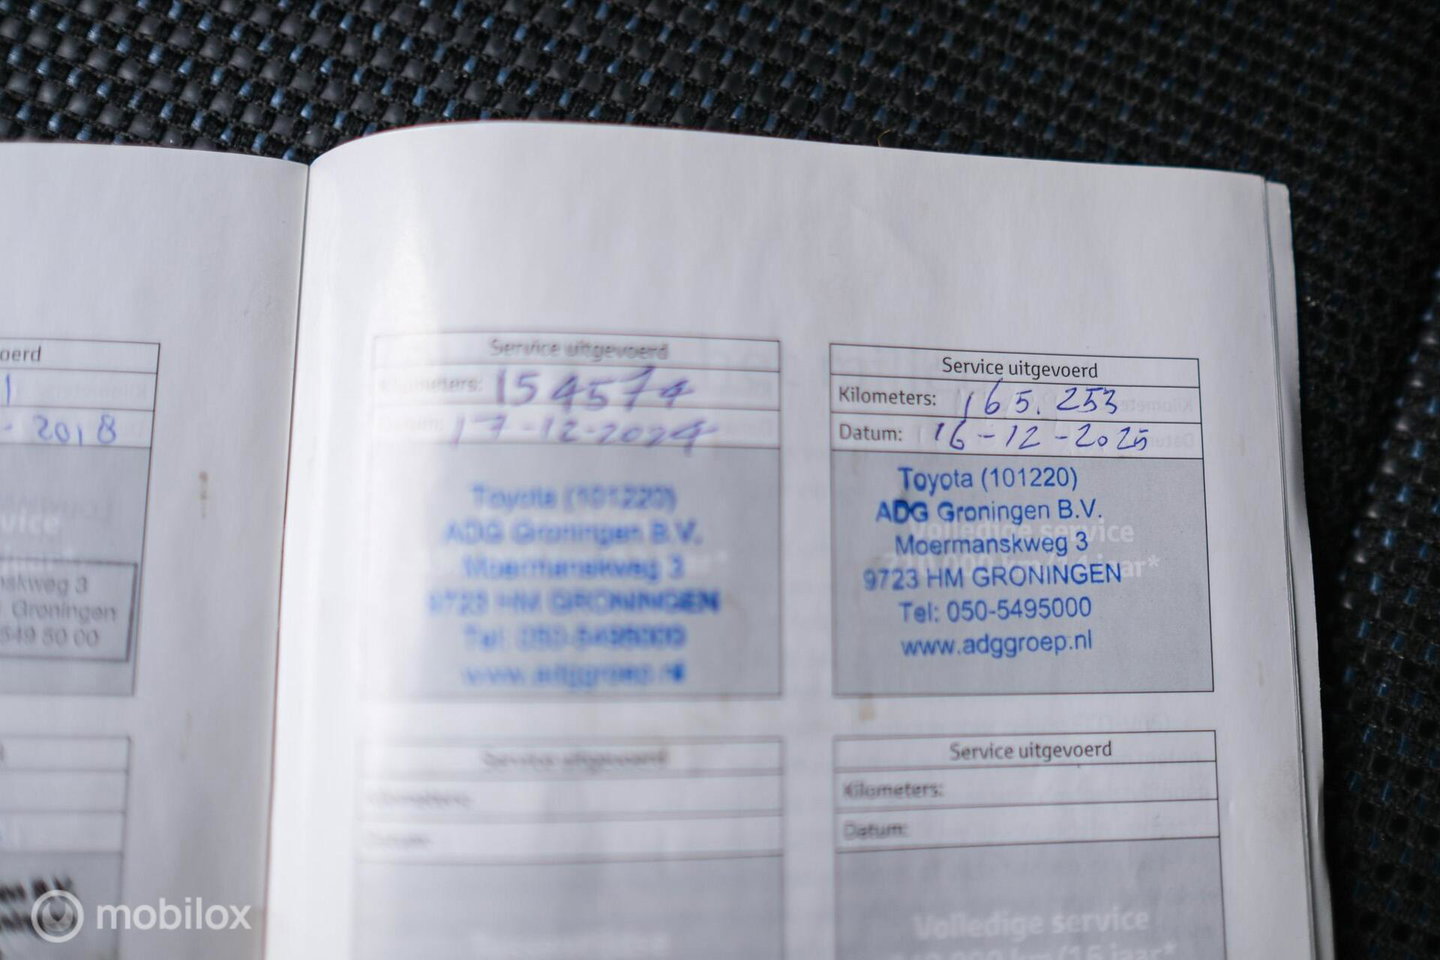 oerd
1
- 2018
vice
nskweg 3
Groningen
549 50 00
Service uitgevoerd
Kilometers: 154574
Datum: 17-12-2024
Toyota (101220)
ADG Groningen B.V.
Moermanskweg 3
9723 HM GRONINGEN
Tel: 050-5495000
www.adggroep.nl
Service uitgevoerd
Kilometers: 165.253
Datum: 16-12-2025
Toyota (101220)
ADG Groningen B.V.
Volledige service
Moermanskweg 3
jaar*
9723 HM GRONINGEN
Tel: 050-5495000
www.adggroep.nl
Service uitgevoerd
Kilometers:
Datum:
Service uitgevoerd
Kilometers:
Datum:
Volledige service
mobilox